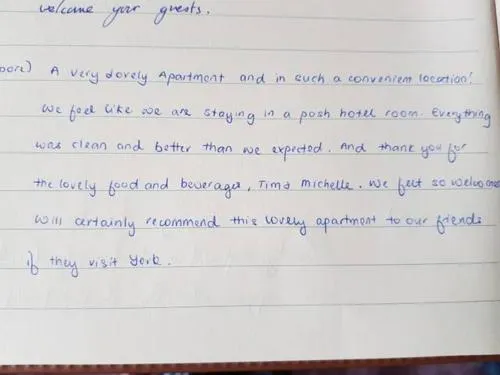 welcome your guests.
A very lovely Apartment and in such a convenient location!
We feel like we are staying in a posh hotel room. Everything
was clean and better than we expected. And thank you for
the lovely food and beverages, Tim & Michelle. We felt so
Will certainly recommend this lovely apartment to our friends
if they visit York.